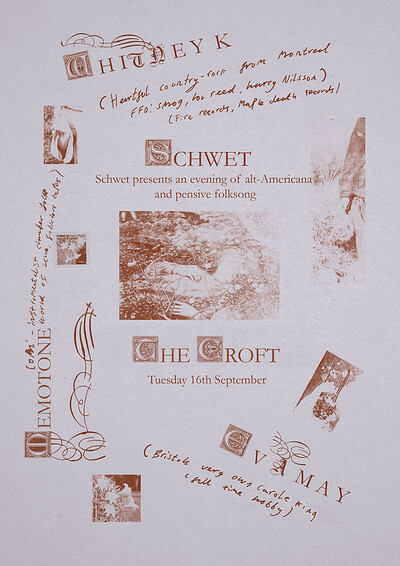 CHITNEY K
(Heartful country-rock from Montreal
FFO: Smog, Lou reed, Harry Nilsson)
(Fire records, Maple death records)
SCHWET
Schwet presents an evening of alt-Americana
and pensive folksong
THE CROFT
Tuesday 16th September
DEMOTONE
instrumentalist chamber folk
EVA MAY
(Bristols very own Carole King
(full time hobby)